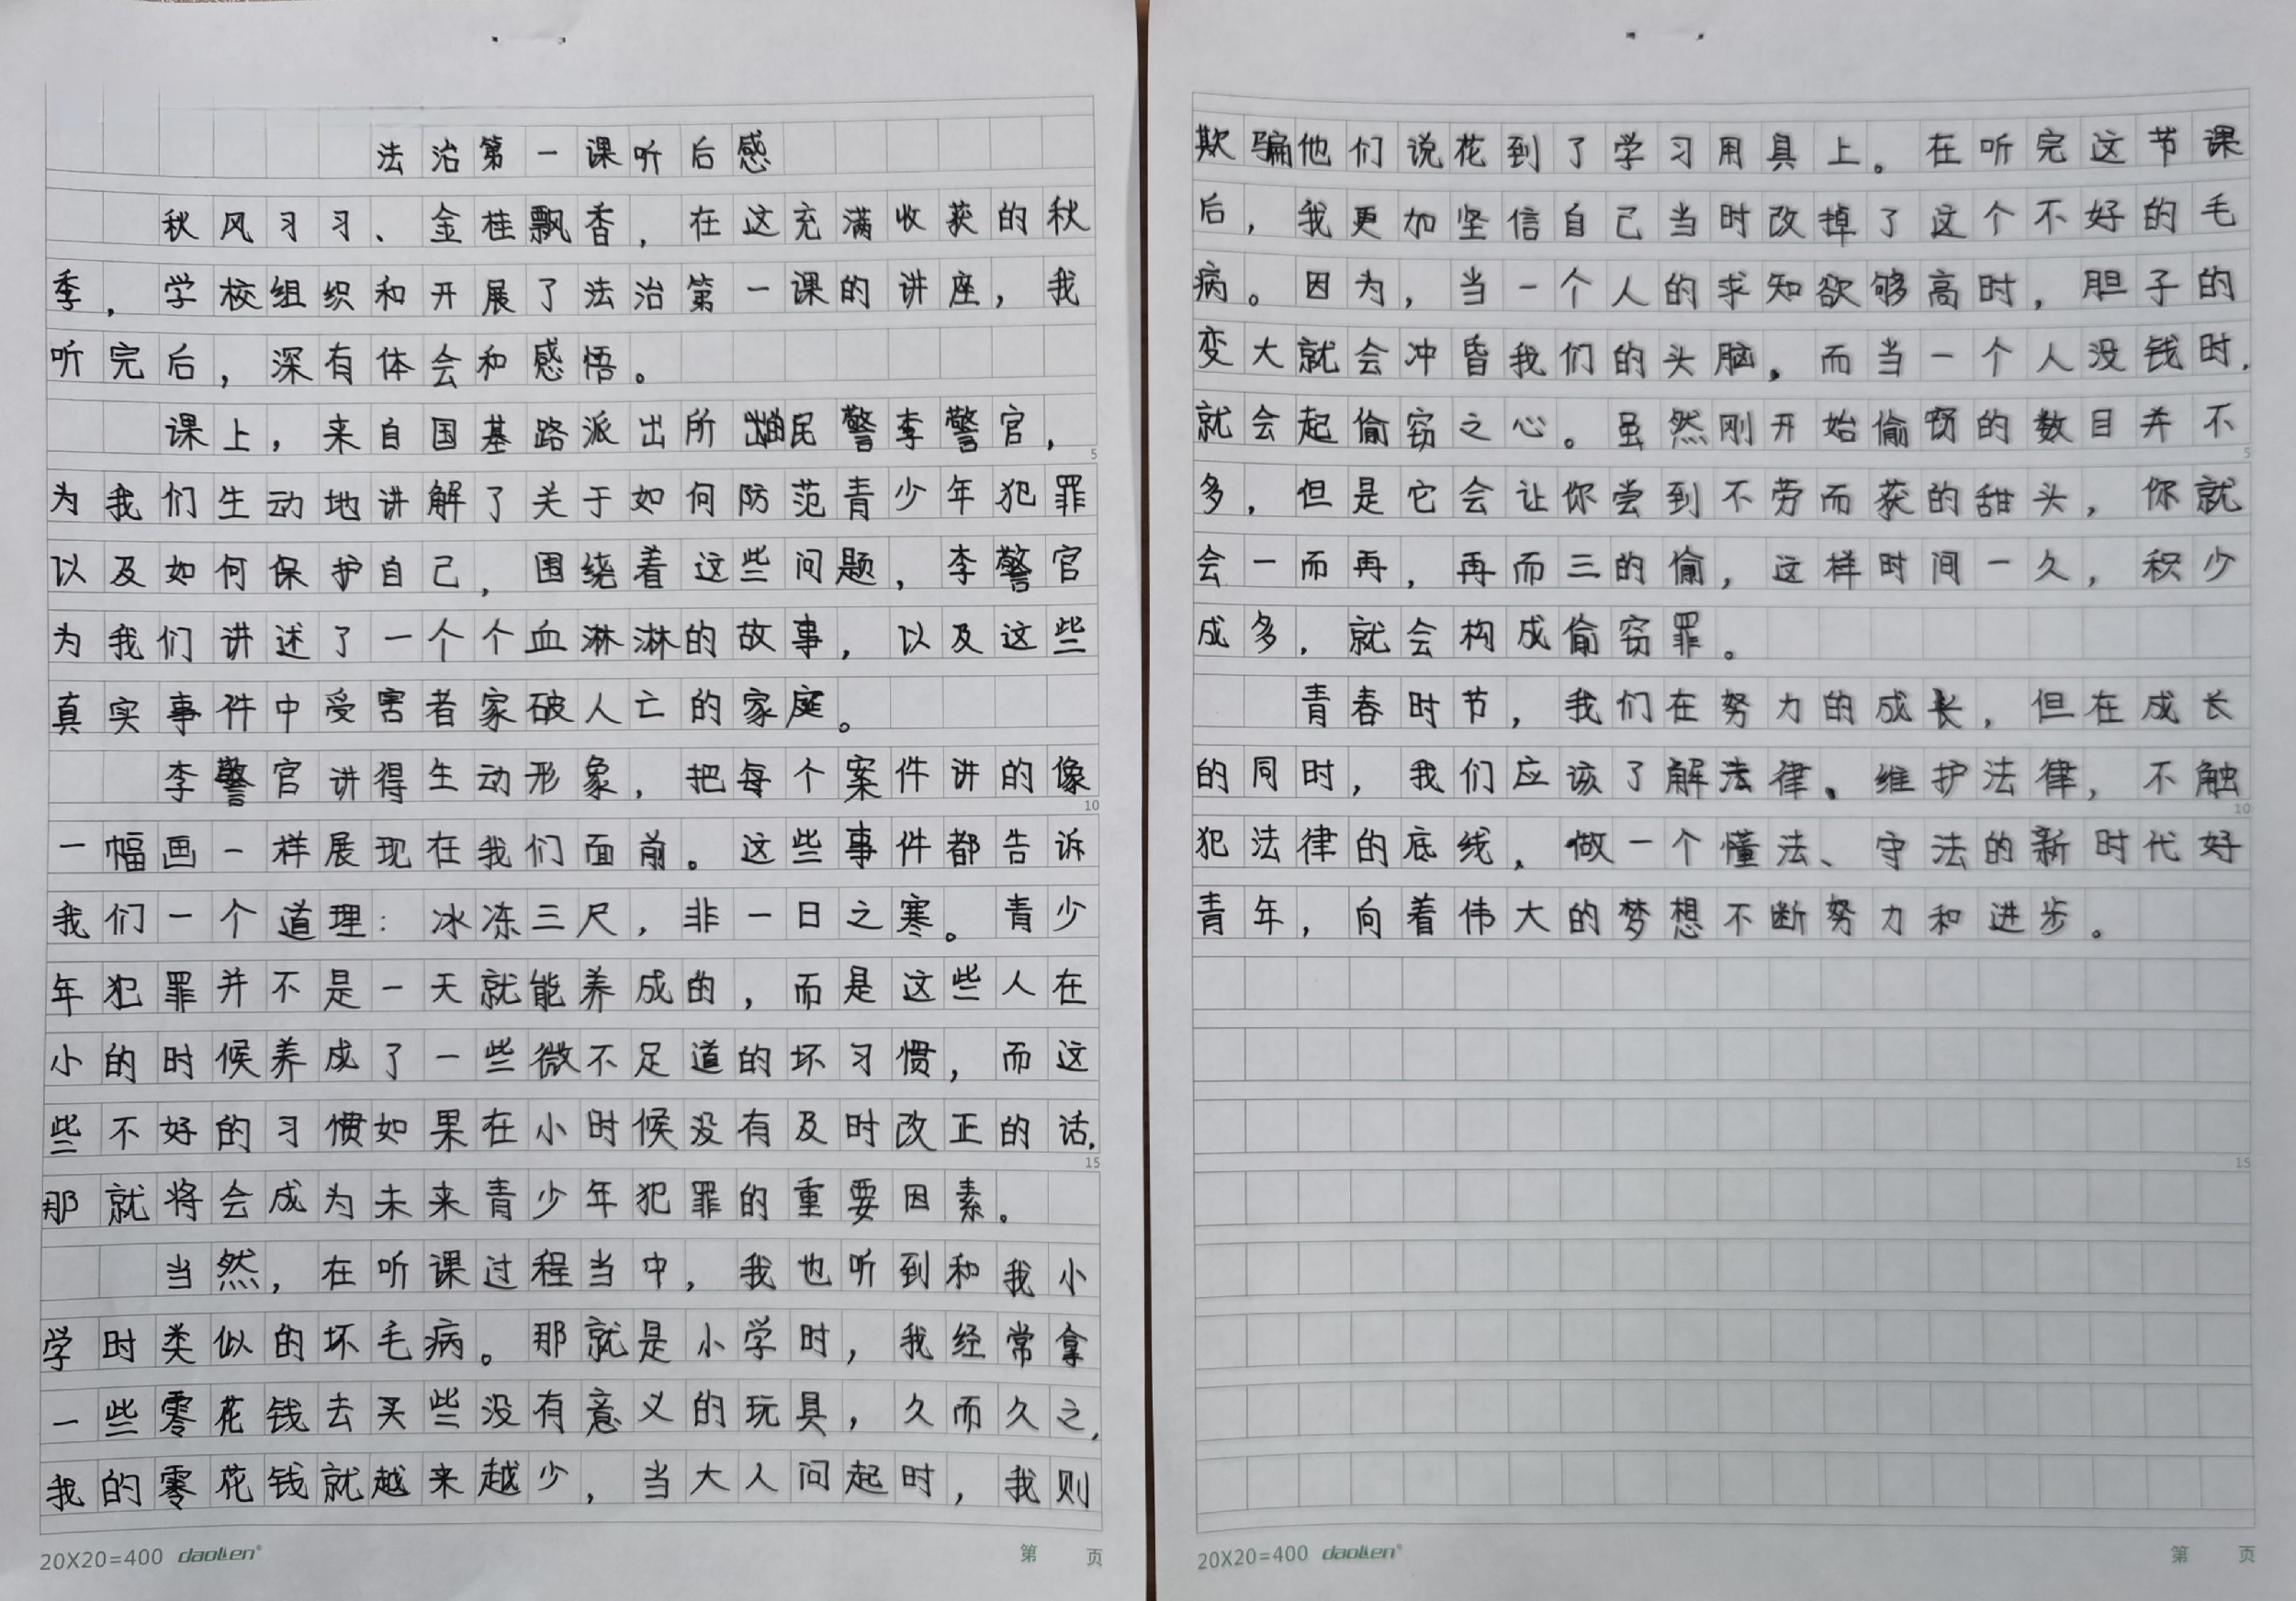 法治第一课听后感
秋风习习、金桂飘香，在这充满收获的秋
季，学校组织和开展了法治第一课的讲座，我
听完后，深有体会和感悟。
课上，来自国基路派出所民警李警官，
为我们生动地讲解了关于如何防范青少年犯罪
以及如何保护自己，围绕着这些问题，李警官
为我们讲述了一个个血淋淋的故事，以及这些
真实事件中受害者家破人亡的家庭。
李警官讲得生动形象，把每个案件讲的像
一幅画一样展现在我们面前。这些事件都告诉
我们一个道理：冰冻三尺，非一日之寒。青少
年犯罪并不是一天就能养成的，而是这些人在
小的时候养成了一些微不足道的坏习惯，而这
些不好的习惯如果在小时候没有及时改正的话，
那就将会成为未来青少年犯罪的重要因素。
当然，在听课过程当中，我也听到和我小
学时类似的坏毛病。那就是小学时，我经常拿
一些零花钱去买些没有意义的玩具，久而久之，
我的零花钱就越来越少，当大人问起时，我则
20X20=400 daolien®
第 页
欺骗他们说花到了学习用具上。在听完这节课
后，我更加坚信自己当时改掉了这个不好的毛
病。因为，当一个人的求知欲够高时，胆子的
变大就会冲昏我们的头脑。而当一个人没钱时，
就会起偷窃之心。虽然刚开始偷窃的数目并不
多，但是它会让你尝到不劳而获的甜头，你就
会一而再，再而三的偷，这样时间一久，积少
成多，就会构成偷窃罪。
青春时节，我们在努力的成长，但在成长
的同时，我们应该了解法律、维护法律，不触
犯法律的底线，做一个懂法、守法的新时代好
青年，向着伟大的梦想不断努力和进步。
20X20=400 daolien®
第 页
5
10
15
5
10
15